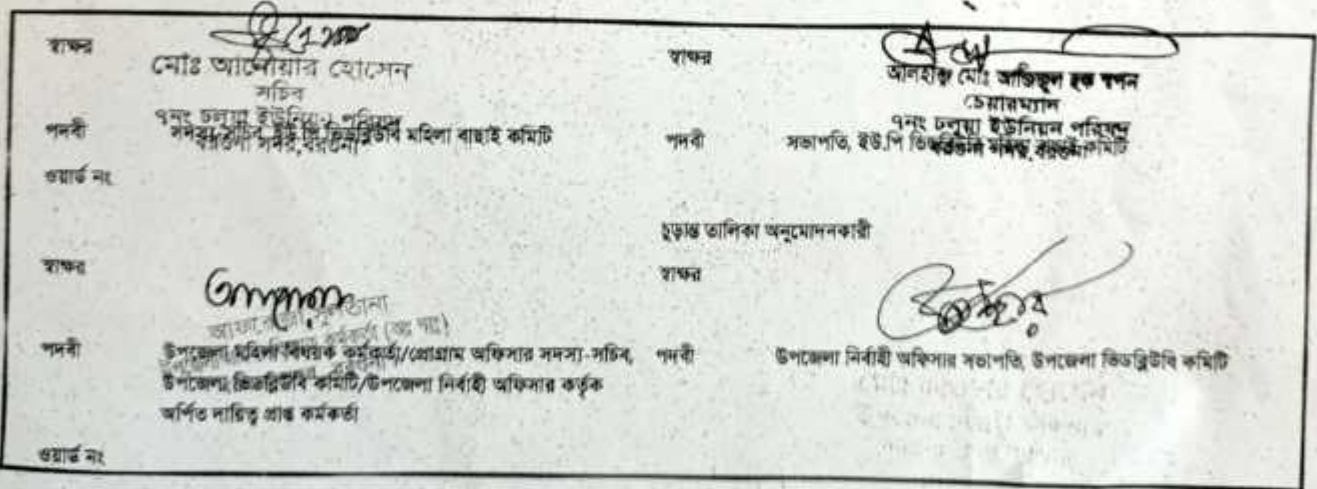 স্বাক্ষর
মোঃ আনোয়ার হোসেন
সচিব
৭নং ঢলুয়া ইউনিয়ন পরিষদ
বরগুনা সদর, বরগুনা
পদবী
সদস্য সচিব, ইউ.পি ভিডব্লিউবি মহিলা বাছাই কমিটি
ওয়ার্ড নং
স্বাক্ষর
আলহাজ্ব মোঃ আজিজুল হক স্বপন
চেয়ারম্যান
৭নং ঢলুয়া ইউনিয়ন পরিষদ
বরগুনা সদর, বরগুনা
পদবী
সভাপতি, ইউ.পি ভিডব্লিউবি মহিলা বাছাই কমিটি
চুড়ান্ত তালিকা অনুমোদনকারী
স্বাক্ষর
পদবী
উপজেলা মহিলা বিষয়ক কর্মকর্তা/প্রোগ্রাম অফিসার সদস্য-সচিব,
উপজেলা ভিডব্লিউবি কমিটি/উপজেলা নির্বাহী অফিসার কর্তৃক
অর্পিত দায়িত্ব প্রাপ্ত কর্মকর্তা
ওয়ার্ড নং
স্বাক্ষর
পদবী
উপজেলা নির্বাহী অফিসার সভাপতি, উপজেলা ভিডব্লিউবি কমিটি